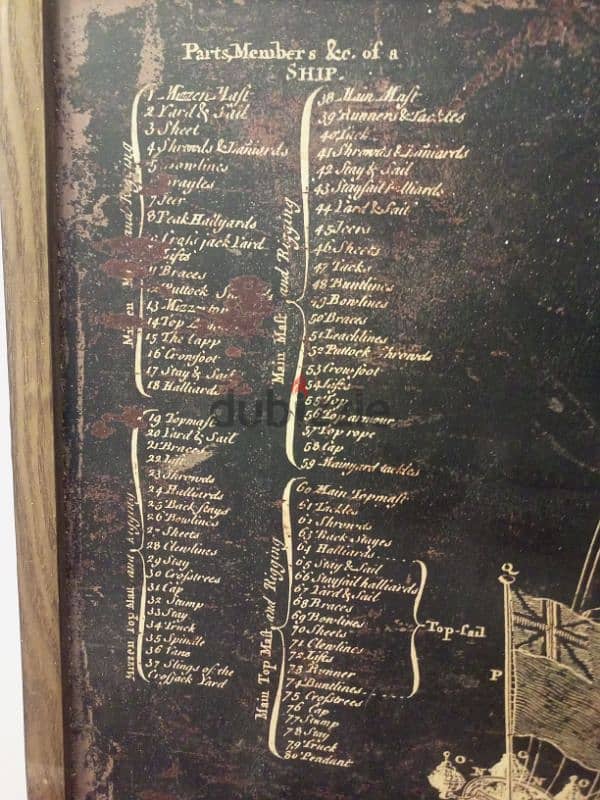 Parts, Members &c. of a
SHIP.
1 Mizzen Mast
2 Yard & Sail
3 Sheet
4 Shrowds & Laniards
5 Bowlines
7 Jeer
8 Peak Hallyards
jack Yard
Lifts
11 Braces
Puttock
13 Mizzen top
14 Top
15 The Capp
16 Crowfoot
17 Stay & Sail
18 Halliards
and Rigging
19 Topmast
20 Yard & Sail
21 Braces
22 Lift
23 Shrowds
24 Halliards
25 Backstays
26 Bowlines
27 Sheets
28 Clewlines
29 Stay
30 Crosstrees
31 Cap
32 Stump
33 Stay
34 Truck
35 Spindle
36 Vane
37 Slings of the
Crossjack Yard
Mizzen Top Mast and Rigging
38 Main Mast
39 Runners & Tackles
40 Tack
41 Shrowds & Laniards
42 Stay & Sail
43 Staysail Halliards
44 Yard & Sail
45 Jeers
46 Sheets
47 Tacks
48 Buntlines
49 Bowlines
50 Braces
51 Leachlines
52 Puttock Shrowds
53 Crowfoot
54 Lifts
55 Top
56 Top armour
57 Top rope
58 Cap
59 Mainyard tackles
Main Mast and Rigging
60 Main Topmast
61 Tackles
61 Shrowds
63 Back Stayes
64 Halliards
65 Stay & Sail
66 Staysail halliards
67 Yard & Sail
68 Braces
69 Bowlines
70 Sheets
71 Clewlines
72 Lifts
73 Runner
74 Buntlines
75 Crosstrees
76 Cap
77 Stump
78 Stay
79 Truck
80 Pendant
Main Top Mast and Rigging
Top-sail
P
dubizzle